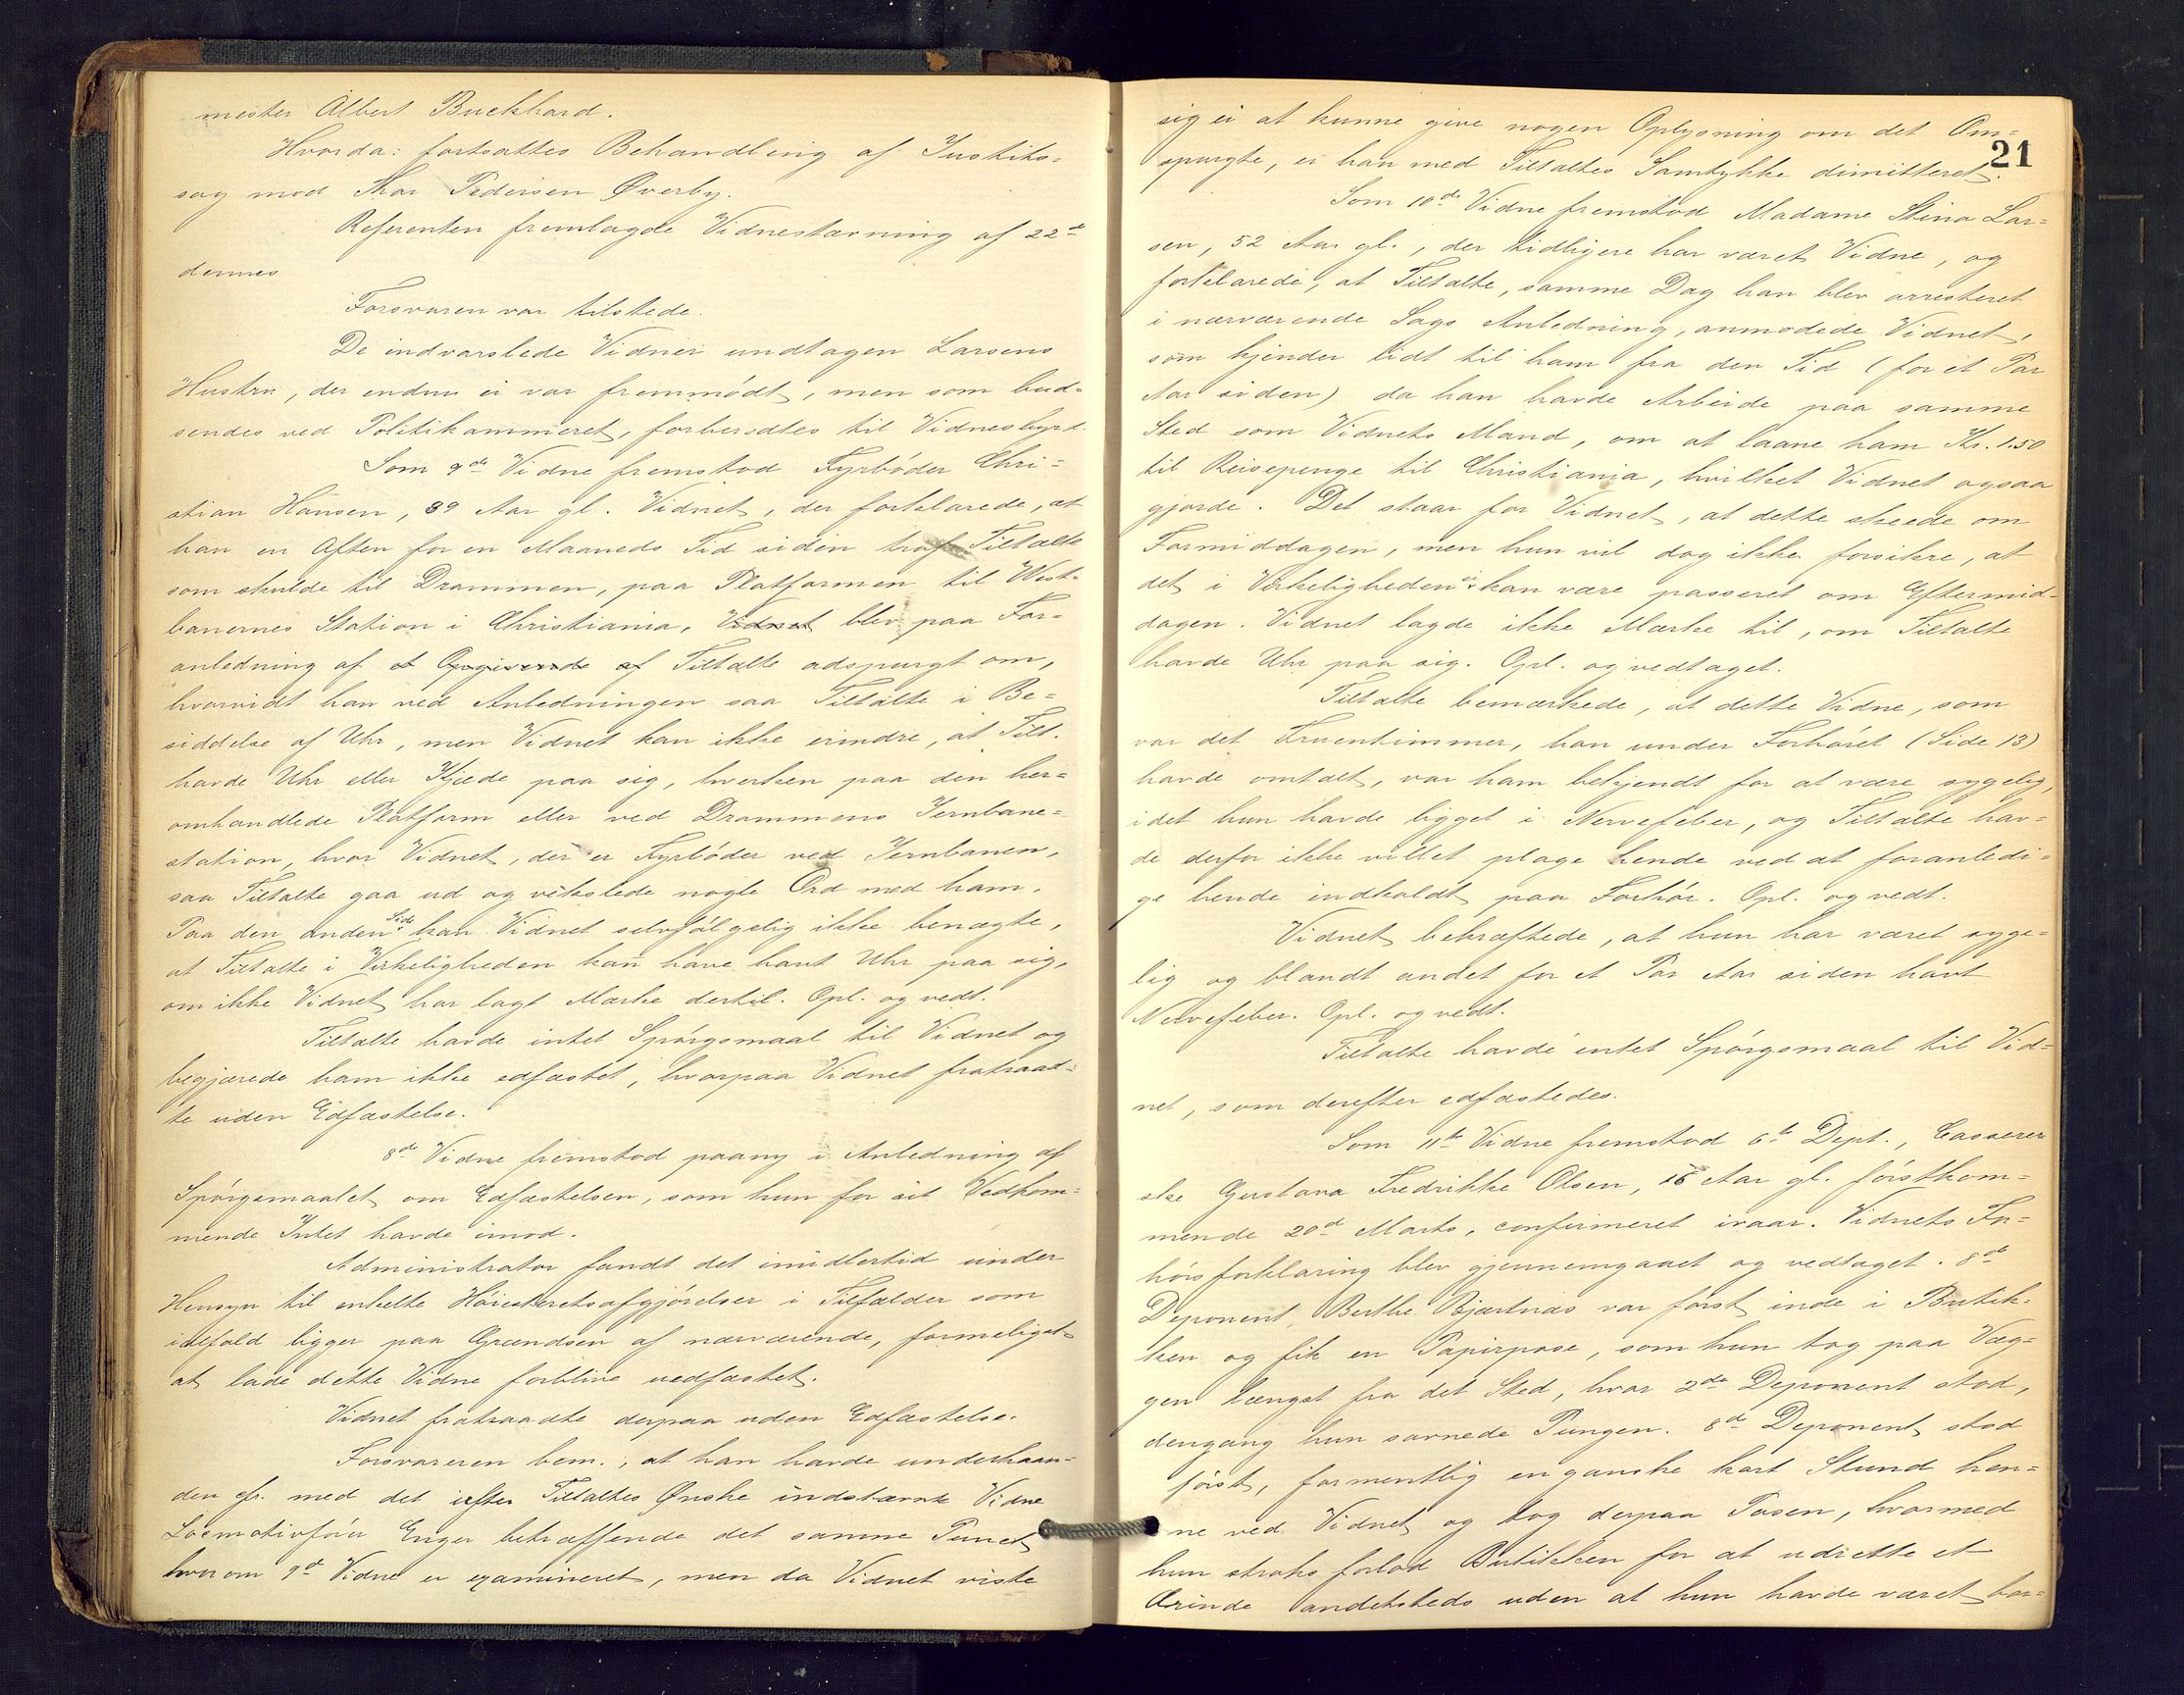 mester Albert Buckhard.
Hvorda: fortsattes Behandling af Justits-
sag mod Thor Pedersen Øverby.
Referenten fremlagde Vidnestævning af 22de
dennes
Forsvaren var tilstede.
De indvarslede Vidner undtagen Larsens
Hustru, der endnu ei var fremmødt, men som bud-
sendes ved Politikammeret, forberedtes til Vidnesbyrd.
Som 9de Vidne fremstod Fyrbøder Chri-
stian Hansen, 39 Aar gl. Vidnet, der forklarede, at
han en Aften for en Maaneds Tid siden traf Tiltalte
som skulde til Drammen, paa Platformen til West-
banernes Station i Christiania, Vidnet blev paa For-
anledning af et Opgivende af Tiltalte adspurgt om,
hvorvidt han ved Anledningen saa Tiltalte i Be-
siddelse af Uhr, men Vidnet kan ikke erindre, at Tilt.
havde Uhr eller Kjæde paa sig, hverken paa den her-
omhandlede Platform eller ved Drammens Jernbane-
station, hvor Vidnet, der er Fyrbøder ved Jernbanen,
saa Tiltalte gaa ud og vexlede nogle Ord med ham.
Paa den anden Side kan Vidnet selvfølgelig ikke benægte,
at Tiltalte i Virkeligheden kan have havt Uhr paa sig,
om ikke Vidnet har lagt Mærke dertil. Opl. og vedt.
Tiltalte havde intet Spørgsmaal til Vidnet og
begjærede ham ikke edfæstet, hvorpaa Vidnet fratraad-
te uden Edfæstelse.
8de Vidne fremstod paany i Anledning af
Spørgsmaalet om Edfæstelsen, som hun for sit Vedkom-
mende Intet havde imod.
Administrator fandt det imidlertid under
Hensyn til enkelte Høiesteretsafgjørelser i Tilfælder som
ialfald ligger paa Grændsen af nærværende, formeligst
at lade dette Vidne forblive uedfæstet.
Vidnet fratraadte derpaa uden Edfæstelse.
Forsvareren bem., at han havde underhaan-
den cfr. med det efter Tiltaltes Ønske indstævnte Vidne
Locmotivfører Enger betræffende det samme Punct
hvorom 9de Vidne er examineret, men da Vidnet viste
21
sig ei at kunne give nogen Oplysning om det Om-
spurgte, er han med Tiltaltes Samtykke dimitteret.
Som 10de Vidne fremstod Madame Stina Lar-
sen, 52 Aar gl., der tidligere har været Vidne, og
forklarede, at Tiltalte, samme Dag han blev arresteret
i nærværende Sags Anledning, anmodede Vidnet,
som kjender lidt til ham fra den Tid (for et Par
Aar siden) da han havde Arbeide paa samme
Sted som Vidnets Mand, om at laane ham Kr. 1.50
til Reisepenge til Christiania, hvilket Vidnet ogsaa
gjorde. Det staar for Vidnet, at dette skeede om
Formiddagen, men hun vil dog ikke forsikre, at
det i Virkeligheden ei kan være passeret om Eftermid-
dagen. Vidnet lagde ikke Mærke til, om Tiltalte
havde Uhr paa sig. Opl. og vedtaget.
Tiltalte bemærkede, at dette Vidne, som
var det Fruentimmer, han under Forhøret (Side 13)
havde omtalt, var ham bekjendt for at være sygelig,
idet hun havde ligget i Nervefeber, og Tiltalte hav-
de derfor ikke villet plage hende ved at foranledi-
ge hende indkaldt paa Forhør. Opl. og vedt.
Vidnet bekræftede, at hun har været syge-
lig og blandt andet for et Par Aar siden havt
Nervefeber. Opl. og vedt.
Tiltalte havde intet Spørgsmaal til Vid-
net, som derefter edfæstedes.
Som 11te Vidne fremstod 6te Dept., Casserer
ske Gustava Fredrikke Olsen, 16 Aar gl. førstkom-
mende 20de Marts, confirmeret ivaar. Vidnets For-
hørsforklaring blev gjennemgaaet og vedtaget. 8de
Deponent, Berthe Bjærknæs var først inde i Butik-
ken og fik en Papirpose, som hun tog paa Væg-
gen længst fra det Sted, hvor 2de Deponent stod,
dengang hun savnede Pungen. 8de Deponent stod
først, formentlig en ganske kort Stund hen-
ne ved Vidnet og tog derpaa Posen, hvormed
hun straks forlod Butikken for at udrette et
Ærinde andetsteds uden at hun havde været bor-